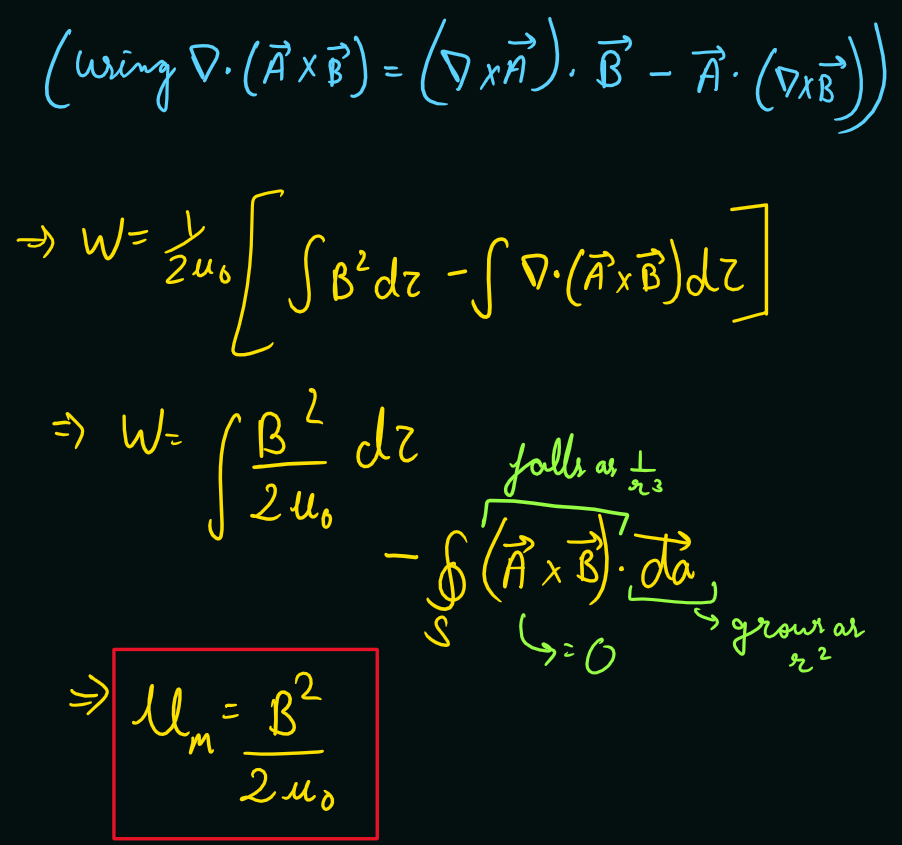 (using ∇·(A⃗ × B⃗) = (∇×A⃗)·B⃗ − A⃗·(∇×B⃗))
⇒ W = 1/2μ₀ [∫B²dτ − ∫∇·(A⃗×B⃗)dτ]
⇒ W = ∫ B²/2μ₀ dτ
falls as 1/r³
− ∮_S (A⃗ × B⃗)·da⃗
↳ = 0
↳ grows as r²
⇒ U_m = B²/2μ₀